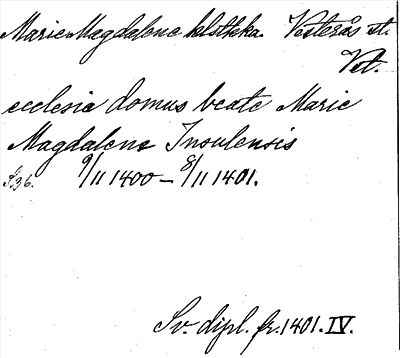 Marie Magdalene klstkka. Vesterås st.
Vst.
ecclesia domus beate Marie
Magdalene Insulensis
S. 36. 9/11 1400 – 8/11 1401.
Sv. dipl. fr. 1401. IV.